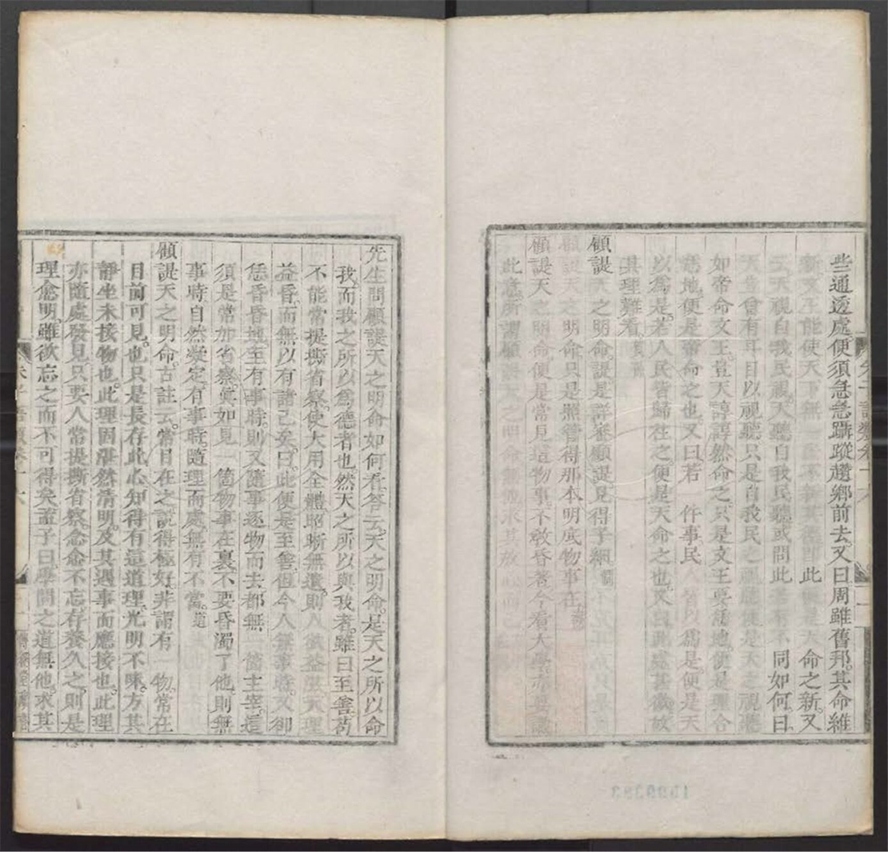 些通透處便須急急躡蹤趲鄉前去又曰周雖舊邦其命維
新文王能使天下無 此 天命之新又
視自我民視天聽自我民聽或問此 不同如何曰
天豈曾有耳目以視聽只是自我民之視聽便是天之視聽
如帝命文王豈天諄諄然命之只是文王要恁地便是理合
恁地便是帝命之也又曰若 件事民 以爲是便是天
以爲是若人民皆歸往之便是天命之也又曰此處甚微故
其理難看
顧諟天之明命諟是詳審顧諟見得子細
顧諟天之明命只是照管得那本明底物事在
顧諟天之明命便是常見這物事不敢昏着今看大學亦要識
此意所謂顧諟天之明命無他求其放心而
先生問顧諟天之明命如何看答云天之明命是天之所以命
我而我之所以爲德者也然天之所以與我者雖曰至善苟
不能常提撕省察使大用全體昭晰無遺則人欲益滋天理
益昏而無以有諸己矣曰此便是至善但今人無事時又卻
恁昏昏地至有事時則又隨事逐物而去都無 箇主宰這
須是常加省察眞如見一箇物事在裏不要昏濁了他則無
事時自然凝定有事時隨理而處無有不當
顧諟天之明命古註云常目在之說得極好非謂有一物常在
目前可見也只是長存此心知得有這道理光明不昧方其
靜坐未接物也此理固湛然清明及其遇事而應接也此理
亦隨處發見只要人常提撕省察念念不忘存養久之則是
理愈明雖欲忘之而不可得矣孟子曰學問之道無他求其